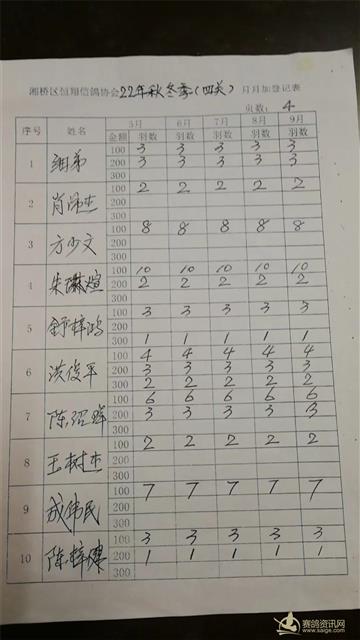 湘桥区恒翔信鸽协会22年秋冬季(四关)月月加登记表
页数: 4
序号 姓名 5月 6月 7月 8月 9月
金额 羽数 羽数 羽数 羽数 羽数
1 细弟
100 3 3 3 3 3
200 3 3 3 3 3
300
2 肖沛杰
100 2 2 2 2 2
200
300
3 方少文
100 8 8 8 8 8
200
300
4 朱煊
100 10 10 10 10 10
200 2 2 2 2 2
300
5 舒梓鸿
100 3 3 3 3 3
200
300 1 1 1 1 1
6 洪俊平
100 4 4 4 4 4
200 3 3 3 3 3
300 2 2 2 2 2
7 陈绍辉
100 6 6 6 6 6
200 3 3 3 3 3
300
8 王树杰
100 2 2 2 2 2
200
300
9 成伟民
100 7 7 7 7 7
200
300
10 陈梓
100 3 3 3 3 3
200 1 1 1 1 1
300
赛鸽资讯网
www.saige.com